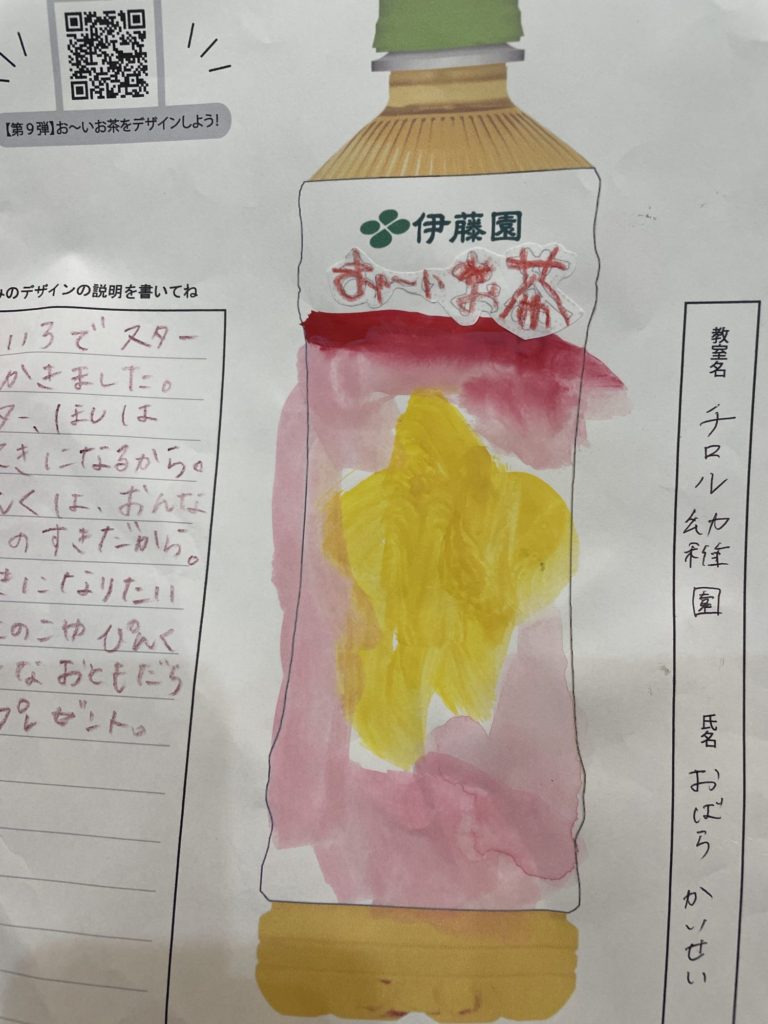 【第9弾】お～いお茶をデザインしよう!
伊藤園
お～いお茶
みのデザインの説明を書いてね
いろでスター
かきました。
ター、ほしは
てきになるから。
んくは、おんな
のすきだから。
きになりたい
このこや ぴんく
なおともだち
プレゼント。
教室名
チロル幼稚園
氏名
おばら かいせい